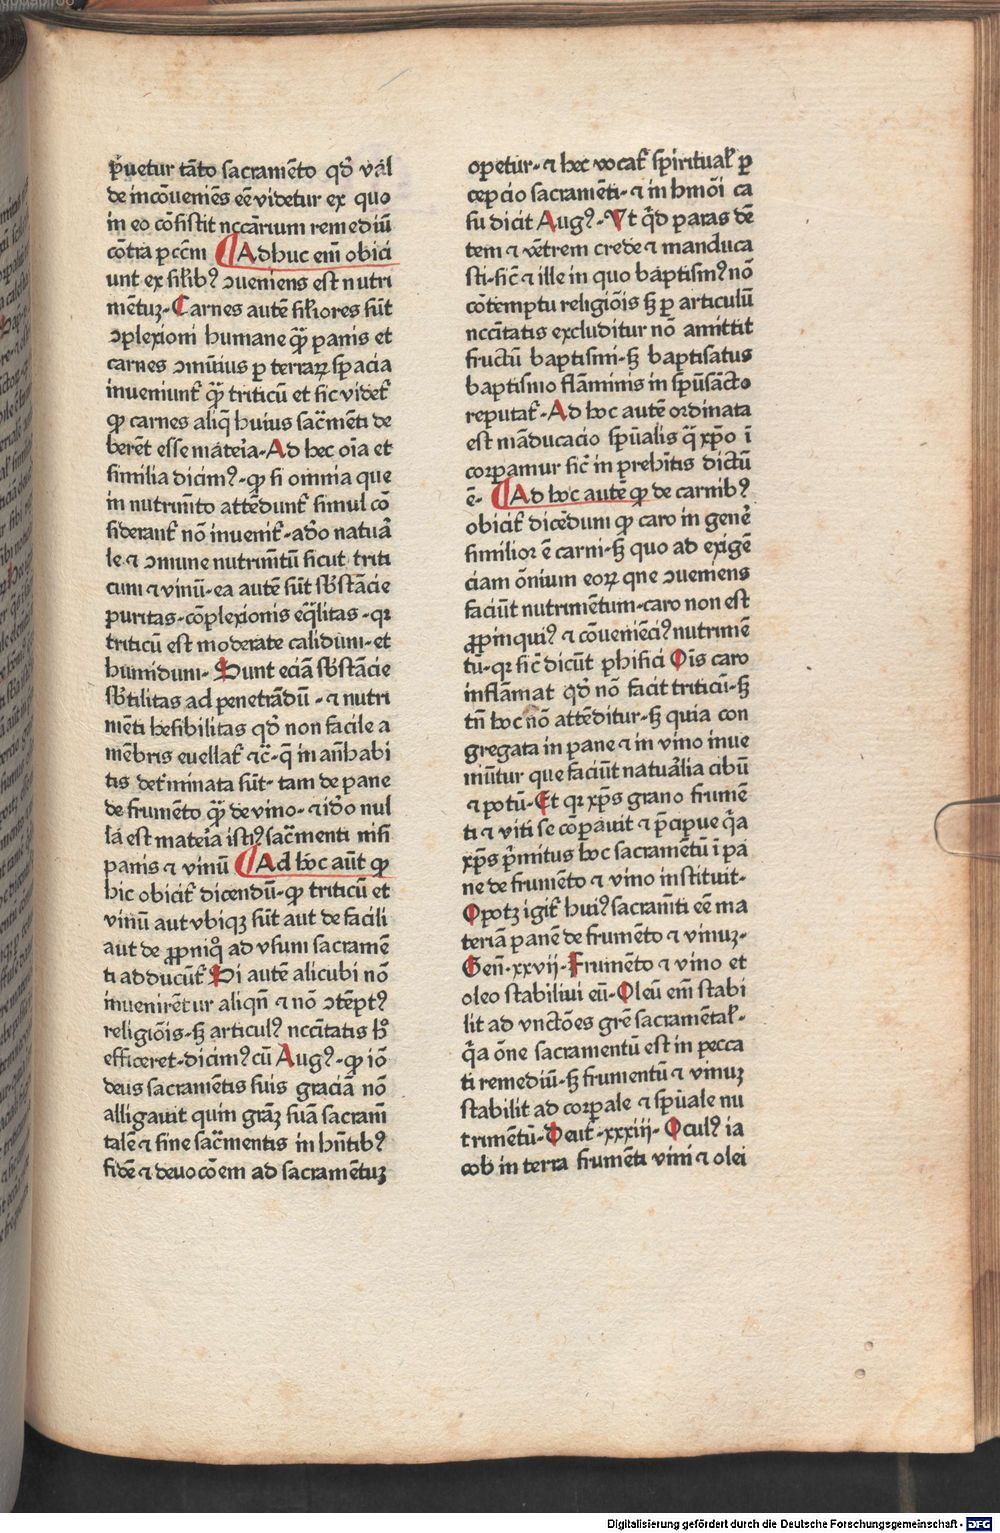 p̄uetur tāto sacramēto qd̄ val
de incōueniēs eē videtur ex quo
in eo cōsistit nccārium remediū
cōtra pccm̄ ¶ Adhuc em̄ obici
unt ex sil̄ibꝫ ꝯueniens est nutri
mētuꝫ. Carnes autē sil̄iores sūt
ꝯplexioni humane qͣꝫ panis et
carnes ꝯmūius ꝑ terraꝝ spacia
inueniunt᷑ qͣꝫ triticū et sic videt᷑
ꝙ carnes aliq̄ huius sac̄menti de
berēt esse mateīa. Ad hec oīa et
similia dicimꝰ. ꝙ si omnia que
in nutrimīto attēdunt᷑ simul cō
siderant᷑ nō inuenit᷑. adeo natuā
le ⁊ ꝯmune nutrimītū sicut triti
cum ⁊ vinū. ea autē sūt sb̄stācie
puritas. cōplexionis eq̄litas. qꝛ
triticū est moderate calidum. et
humidum. Sunt eciā sb̄stācie
sb̄tilitas ad penetrādū. ⁊ nutri
mēti hesibilitas qd̄ non facile a
mēbris euellat᷑ ⁊c̄. q̄ in an̄habi
tis det᷑minata sūt. tam de pane
de frumēto qͣꝫ de vino. ⁊ ido nul
la est mateīa istiꝰ sac̄menti nisi
panis ⁊ vinū ¶ Ad hoc aūt ꝙ
hic obicit᷑ dicendū. ꝙ triticū et
vinū aut vbiqꝫ sūt aut de facili
aut de ꝓpniqͦ ad vsum sacramē
ti adducūt᷑ Si autē alicubi nō
inuenirētur aliqn̄ ⁊ nō ꝯtēptꝰ
religiōis. sꝫ articulꝰ nccītatis hͦ
efficeret. dicimꝰ cū Augꝰ. ꝙ iō
deus sacramētis suis graciā nō
alligauit quin grāꝫ suā sacram̄
talē ⁊ sine sac̄mentis in hn̄tibꝫ
fidē ⁊ deuocōem ad sacramētuꝫ
opetur. ⁊ hec vocat᷑ spiritual᷑ ꝑ
cepcio sacramēti. ⁊ in hm̄oi ca
su dicit Augꝰ. Vt qͥd paras dē
tem ⁊ vētrem crede ⁊ manduca
sti. sic̄ ⁊ ille in quo baptismꝰ nō
cōtemptu religiōis sꝫ ꝑ articulū
nccītatis excluditur nō amittit
fructū baptismi. sꝫ baptisatus
baptismo flāminis in spūsācto
reputat᷑. Ad hoc autē ordinata
est māducacio spūalis qͣ xp̄o ī
corꝑamur sic̄ in prehītis dictū
ē. ¶ Ad hoc autē ꝙ de carnibꝫ
obicit᷑ dicēdum ꝙ caro in gene᷑
similior ē carni. sꝫ quo ad exigē
ciam ōnium eoꝝ que ꝯueniens
faciūt nutrimētum. caro non est
ꝓpinquiꝰ ⁊ cōueniēciꝰ nutrimē
tū. qꝛ sic̄ dicūt phisici Oīs caro
inflāmat qd̄ nō facit triticū. sꝫ
tn̄ hoc nō attēditur. sꝫ quia con
gregata in pane ⁊ in vino inue
niūtur que faciūt natuālia cibū
⁊ potū. Et qꝛ xp̄s grano frumē
ti ⁊ viti se cōpāuit ⁊ p̄cipue qͣa
xp̄s pͥmitus hoc sacramētū ī pa
ne de frumēto ⁊ vino instituit.
Opotꝫ igit᷑ huiꝰ sacram̄ti eē ma
teriā panē de frumēto ⁊ vinuꝫ.
Gen̄. xxvij. Frumēto ⁊ vino et
oleo stabiliui eū. Oleū em̄ stabi
lit ad vnctōes grē sacramētal᷑.
qͣa ōne sacramentū est in pecca
ti remediū. sꝫ frumentū ⁊ vinuꝫ
stabilit ad corꝑale ⁊ spūale nu
trimētū. Deut᷑. xxxiij. Oculꝰ ia
cob in terra frumēti vini ⁊ olei
Digitalisierung gefördert durch die Deutsche Forschungsgemeinschaft - DFG